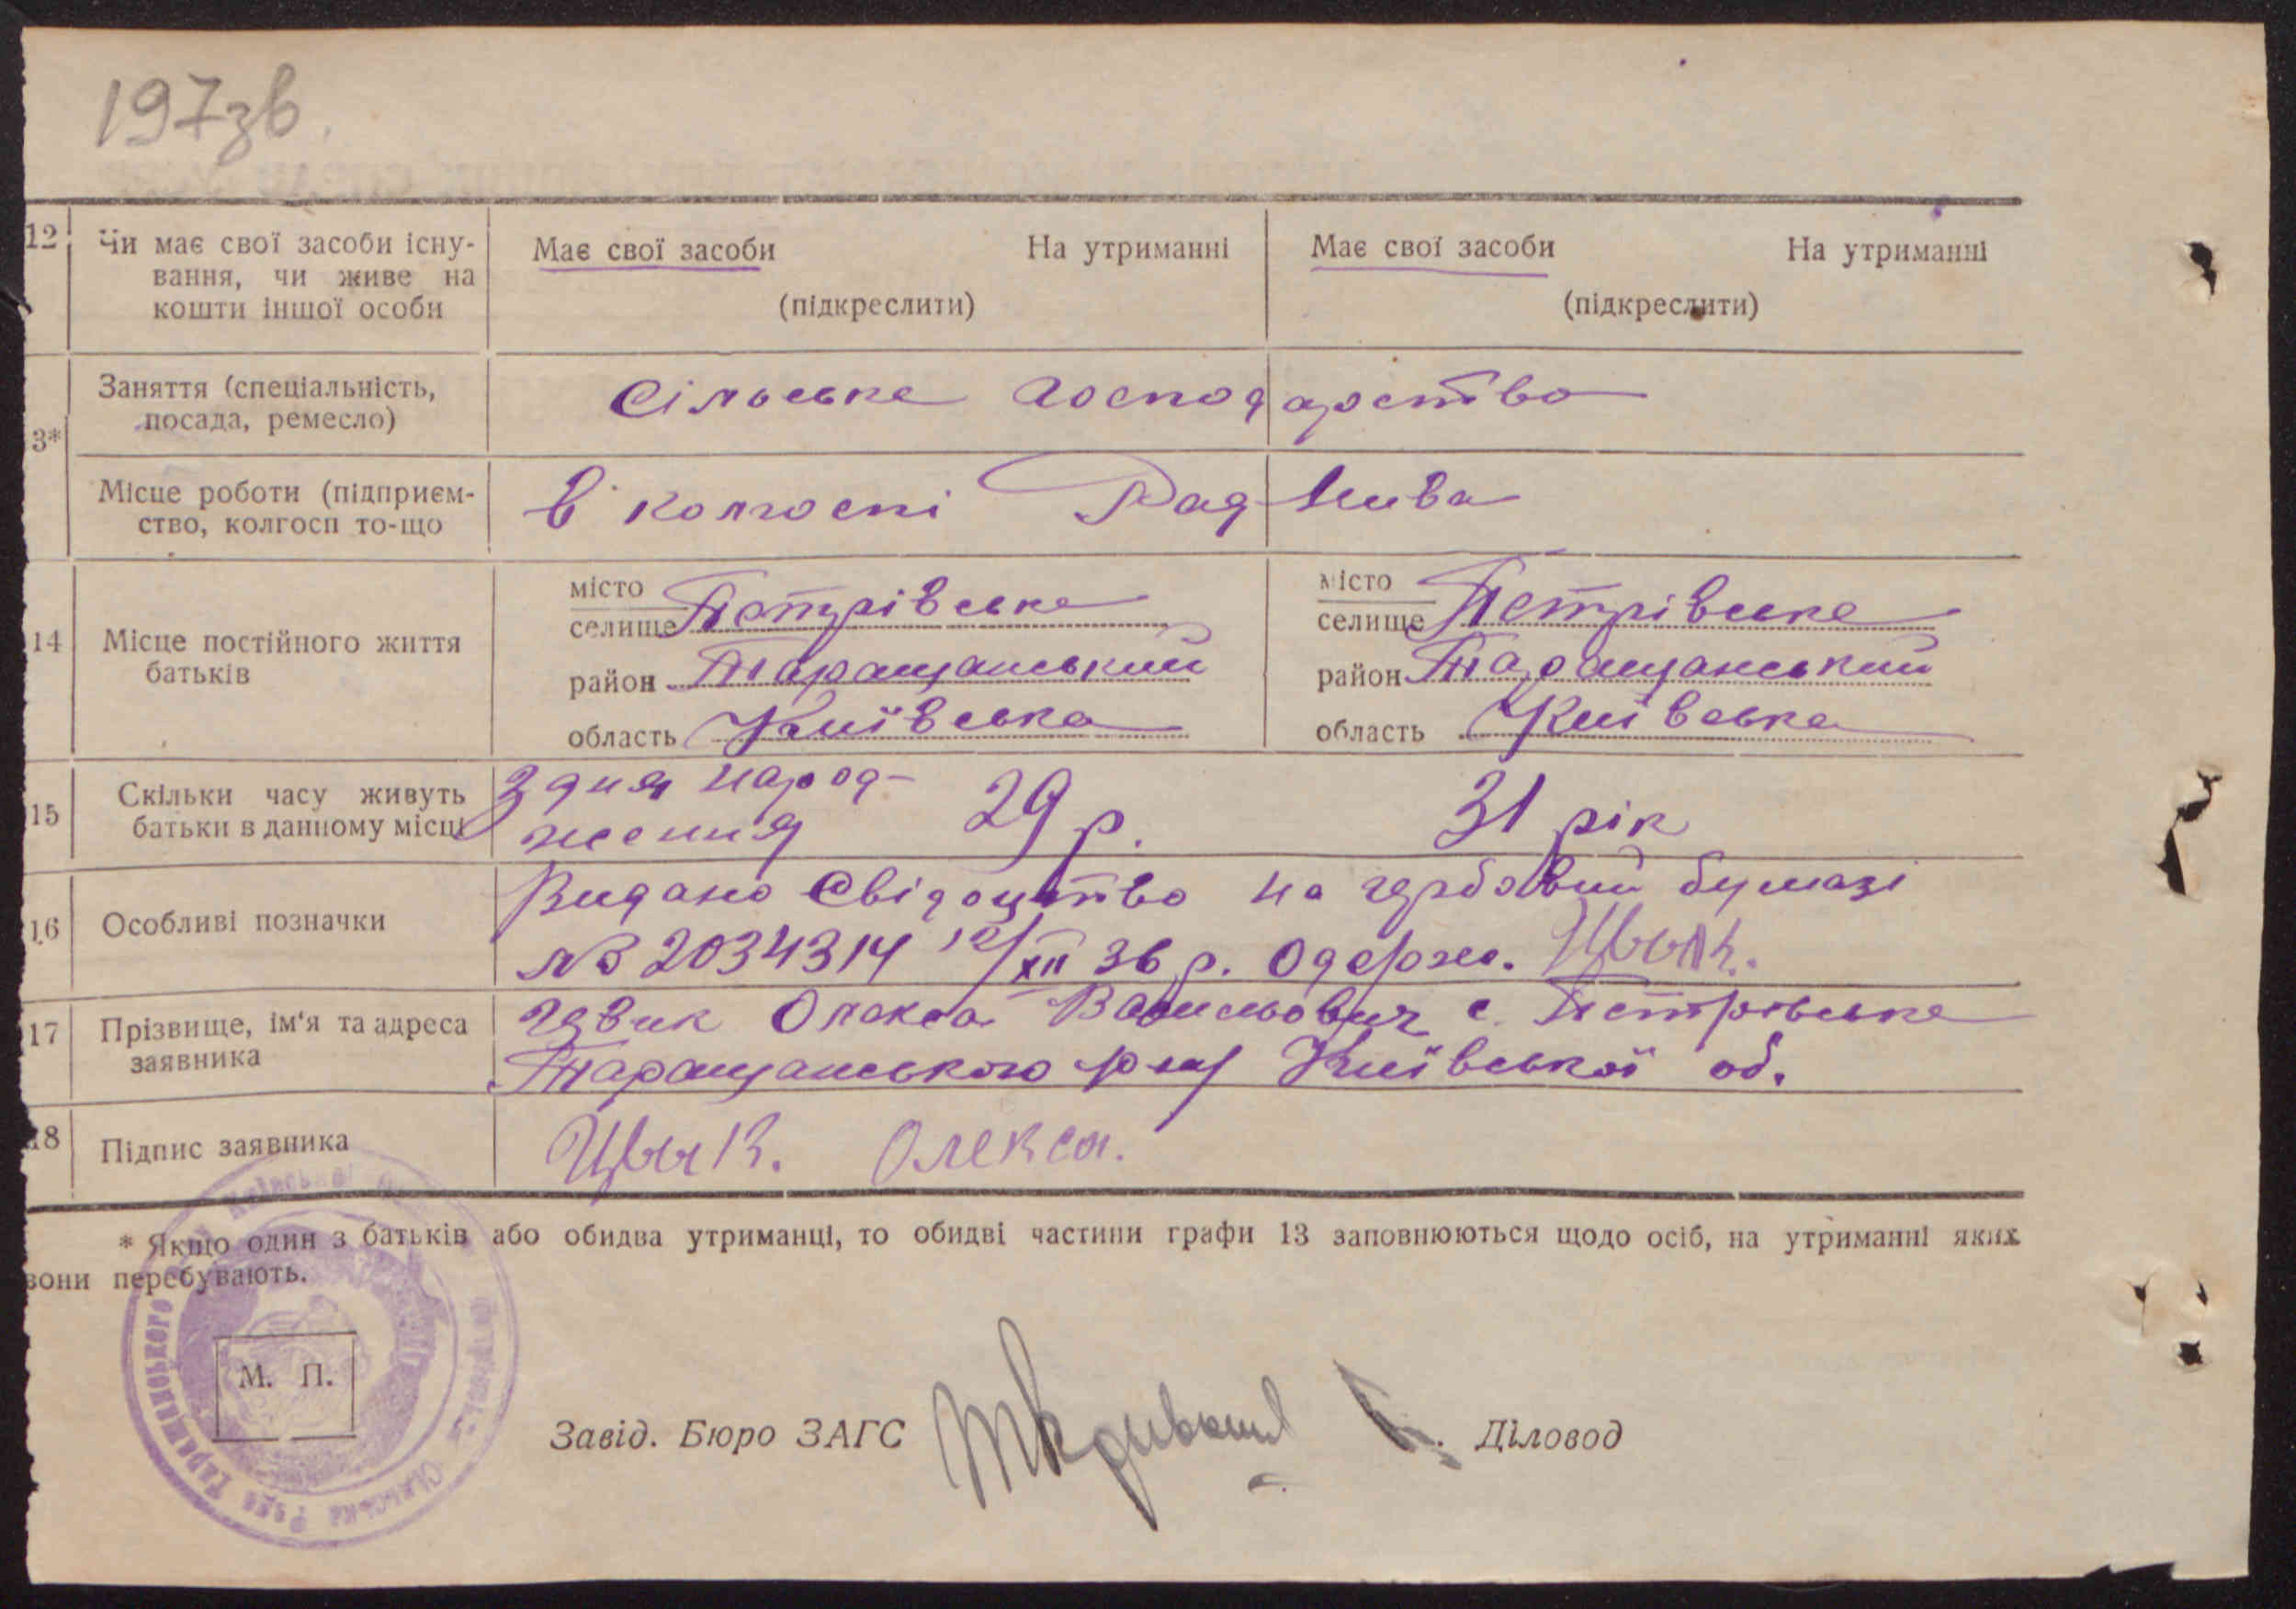 197зв.
12 Чи має свої засоби існу- Має свої засоби На утриманні Має свої засоби На утриманні
вання, чи живе на
кошти іншої особи (підкреслити) (підкреслити)
Заняття (спеціальність, Сільське господарство
посада, ремесло)
3*
Місце роботи (підприєм- В колгоспі Рад Нива
ство, колгосп то-що
місто Петрівське місто Петрівське
селище селище
14 Місце постійного життя район Таращанський район Таращанський
батьків
область Київська область Київська
15 Скільки часу живуть З дня народ- 29 р. 31 рік
батьки в данному місці ження
16 Особливі позначки Видано Свідоцтво на гербовій бумазі
№ 2034314 12/XII 36 р. Одерж. Цвык.
17 Прізвище, ім'я та адреса Цвик Олекса Васильович с. Петрівське
заявника Таращанського р-ну Київської об.
18 Підпис заявника Цвык. Олекса.
* Якщо один з батьків або обидва утриманці, то обидві частини графи 13 заповнюються щодо осіб, на утриманні яких
вони перебувають.
М. П.
Завід. Бюро ЗАГС Діловод
Сільська Рада Таращанського Київської